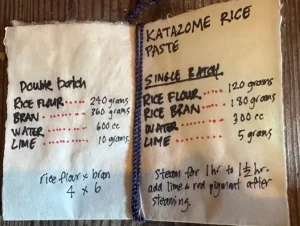 Double batch
RICE FLOUR..... 240 grams
BRAN ........ 360 grams
WATER....... 600 cc
LIME....... 10 grams
rice flour x bran
4 x 6
KATAZOME RICE
PASTE
SINGLE BATCH
RICE FLOUR..... 120 grams
RICE BRAN...... 180 grams
WATER........ 300 cc
LIME......... 5 grams
Steam for 1 hr to 1 1/2 hr.
add lime & red pigment after
steaming.